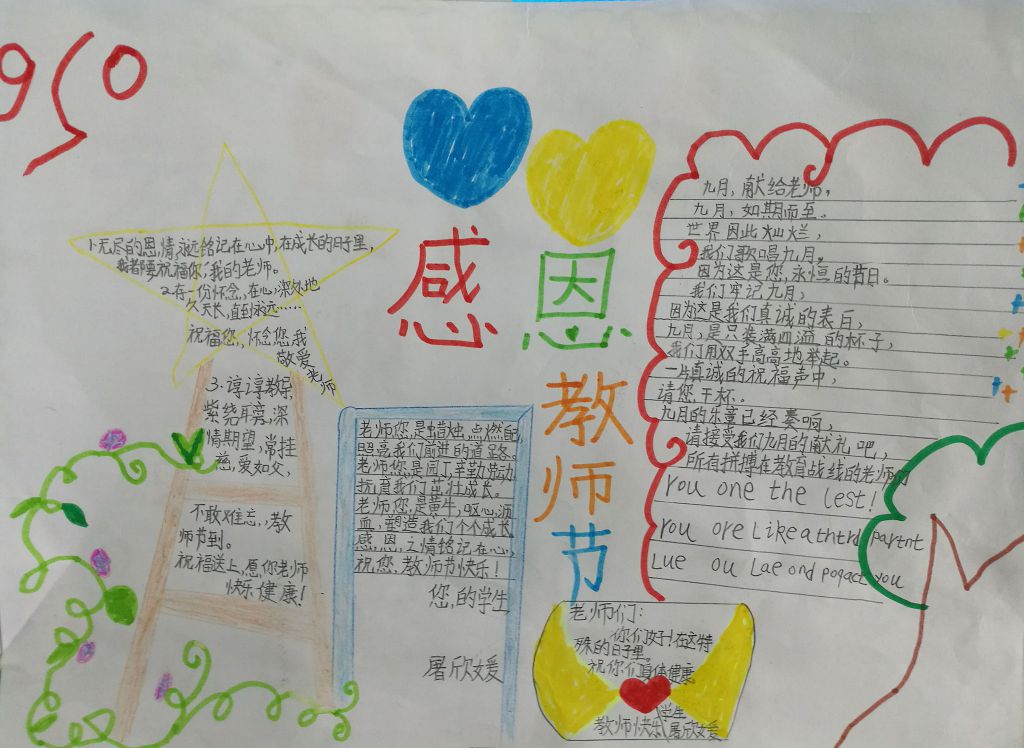 950
1.无尽的恩情,永远铭记在心中,在成长的日子里,
我都要祝福你,我的老师。
2.有一份怀念,在心深处,地
久天长,直到永远……
祝福您,怀念您我
敬爱
老师
3.谆谆教导,
萦绕耳旁,深
情期望,常挂
慈,爱如父,
不敢难忘,教
师节到。
祝福送上,愿你老师
快乐健康!
感恩
教师节
老师您,是蜡烛,点燃自己
照亮我们前进的道路。
老师您,是园丁辛勤劳动,
抚育我们茁壮成长。
老师您,是黄牛,呕心沥
血,塑造我们个个成长
感恩,之情铭记在心,
祝您,教师节快乐!
您,的学生
屠欣媛
九月,献给老师。
九月,如期而至。
世界因此灿烂,
我们歌唱九月。
因为这是您,永恒的节日。
我们牢记九月,
因为这是我们真诚的表白,
九月,是只装满四溢的杯子,
我们用双手高高地举起。
一片真诚的祝福声中,
请您,干杯。
九月的乐章已经奏响,
请接受我们九月的献礼吧,
所有拼搏在教育战线的老师们
You one the lest!
You ore like a thtrd partnt
Lue ou Lae ond poqact you
老师们:
你们好!在这特
殊的日子里。
祝你们身体健康
学生
教师快乐 屠欣媛